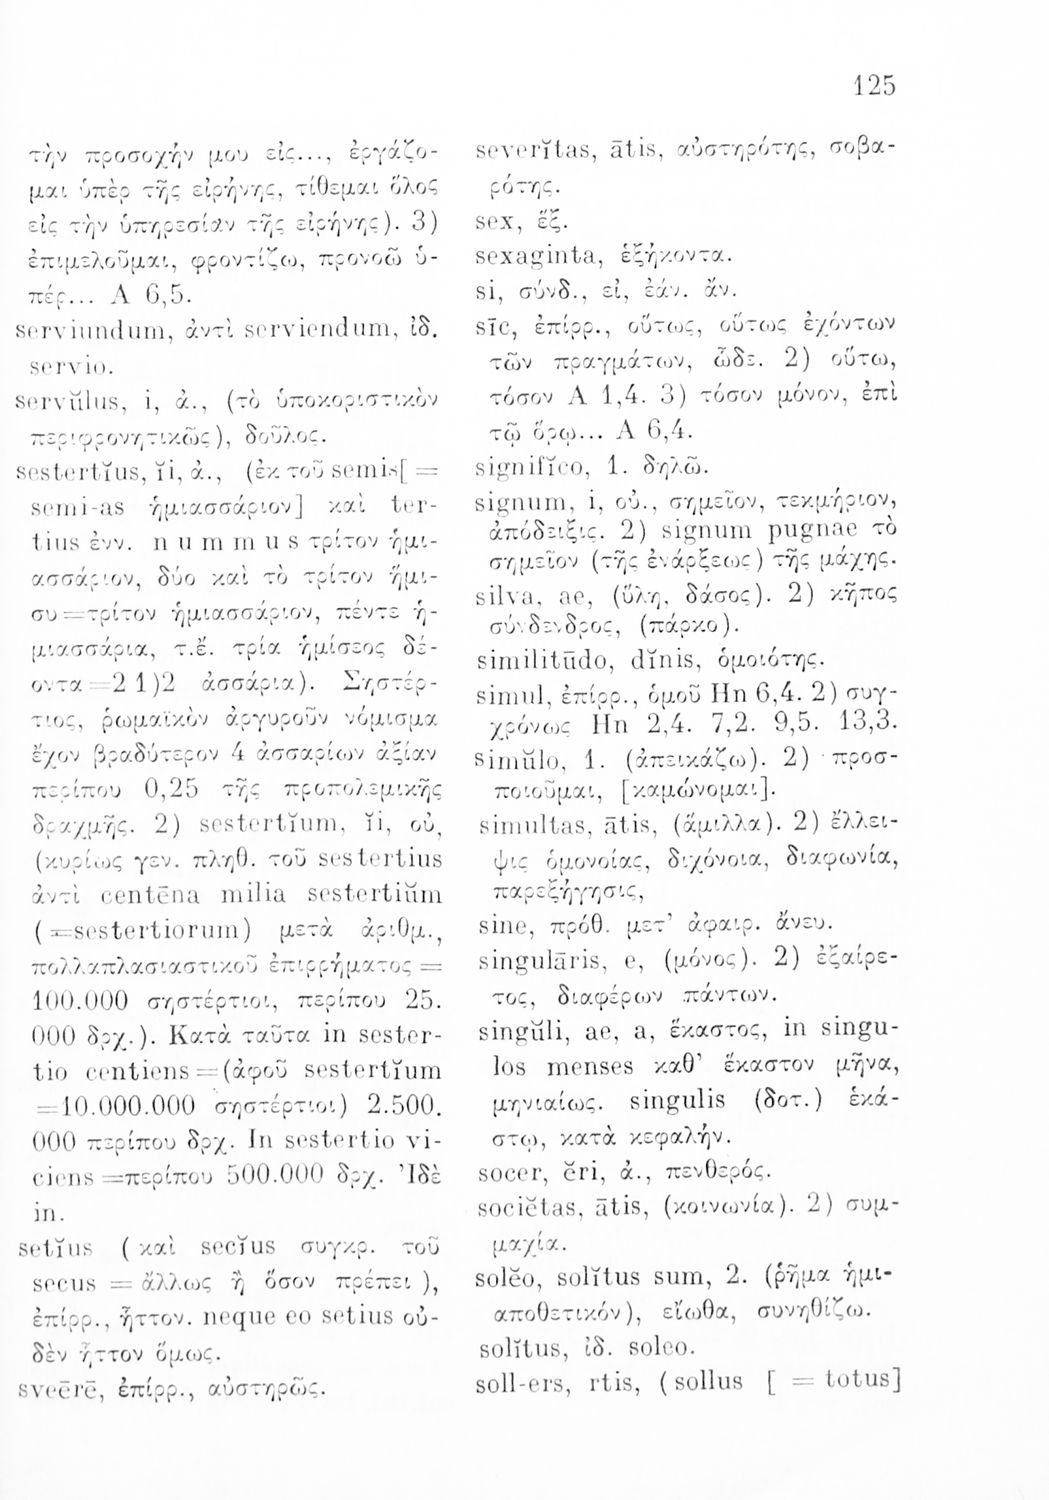 125
τὴν προσοχήν μου εἰς..., ἐργάζο-
μαι ὑπὲρ τῆς εἰρήνης, τίθεμαι ὅλος
εἰς τὴν ὑπηρεσίαν τῆς εἰρήνης). 3)
ἐπιμελοῦμαι, φροντίζω, προνοῶ ὑ-
πέρ... Α 6,5.
serviundum, ἀντὶ serviendum, ἰδ.
servio.
servŭlus, i, ἀ., (τὸ ὑποκοριστικὸν
περιφρονητικῶς), δοῦλος.
sestertĭus, ĭi, ἀ., (ἐκ τοῦ semis[ =
semi-as ἡμιασσάριον] καὶ ter-
tius ἐνν. nummus τρίτον ἡμι-
ασσάριον, δύο καὶ τὸ τρίτον ἥμι-
συ=τρίτον ἡμιασσάριον, πέντε ἡ-
μιασσάρια, τ.ἔ. τρία ἡμίσεος δέ-
οντα=2 1)2 ἀσσάρια). Σηστέρ-
τιος, ῥωμαϊκὸν ἀργυροῦν νόμισμα
ἔχον βραδύτερον 4 ἀσσαρίων ἀξίαν
περίπου 0,25 τῆς προπολεμικῆς
δραχμῆς. 2) sestertĭum, ĭi, οὐ,
(κυρίως γεν. πληθ. τοῦ sestertius
ἀντὶ centēna milia sestertiŭm
(=sestertiorum) μετὰ ἀριθμ.,
πολλαπλασιαστικοῦ ἐπιρρήματος =
100.000 σηστέρτιοι, περίπου 25.
000 δρχ.). Κατὰ ταῦτα in sester-
tio centiens=(ἀφοῦ sestertĭum
=10.000.000 σηστέρτιοι) 2.500.
000 περίπου δρχ. In sestertio vi-
ciens=περίπου 500.000 δρχ. Ἰδὲ
in.
setĭus (καὶ secĭus συγκρ. τοῦ
secus = ἄλλως ἢ ὅσον πρέπει ),
ἐπίρρ., ἧττον. neque eo setius οὐ-
δὲν ἧττον ὅμως.
sveērē, ἐπίρρ., αὐστηρῶς.
severĭtas, ātis, αὐστηρότης, σοβα-
ρότης.
sex, ἕξ.
sexaginta, ἑξήκοντα.
si, σύνδ., εἰ, ἐάν. ἄν.
sīc, ἐπίρρ., οὕτως, οὕτως ἐχόντων
τῶν πραγμάτων, ὧδε. 2) οὕτω,
τόσον Α 1,4. 3) τόσον μόνον, ἐπὶ
τῷ ὅρῳ... Α 6,4.
signifĭco, 1. δηλῶ.
signum, i, οὐ., σημεῖον, τεκμήριον,
ἀπόδειξις. 2) signum pugnae τὸ
σημεῖον (τῆς ἐνάρξεως) τῆς μάχης.
silva, ae, (ὕλη, δάσος). 2) κῆπος
σύνδενδρος, (πάρκο).
similitūdo, dĭnis, ὁμοιότης.
simul, ἐπίρρ., ὁμοῦ Hn 6,4. 2) συγ-
χρόνως Hn 2,4. 7,2. 9,5. 13,3.
simŭlo, 1. (ἀπεικάζω). 2) προσ-
ποιοῦμαι, [καμώνομαι].
simultas, ātis, (ἅμιλλα). 2) ἔλλει-
ψις ὁμονοίας, διχόνοια, διαφωνία,
παρεξήγησις,
sine, πρόθ. μετ’ ἀφαιρ. ἄνευ.
singulāris, e, (μόνος). 2) ἐξαίρε-
τος, διαφέρων πάντων.
singŭli, ae, a, ἕκαστος, in singu-
los menses καθ’ ἕκαστον μῆνα,
μηνιαίως. singulis (δοτ.) ἑκά-
στῳ, κατὰ κεφαλήν.
socer, ĕri, ἀ., πενθερός.
sociĕtas, ātis, (κοινωνία). 2) συμ-
μαχία.
solĕo, solĭtus sum, 2. (ῥῆμα ἡμι-
αποθετικόν), εἴωθα, συνηθίζω.
solĭtus, ἰδ. soleo.
soll-ers, rtis, (sollus [ = totus]